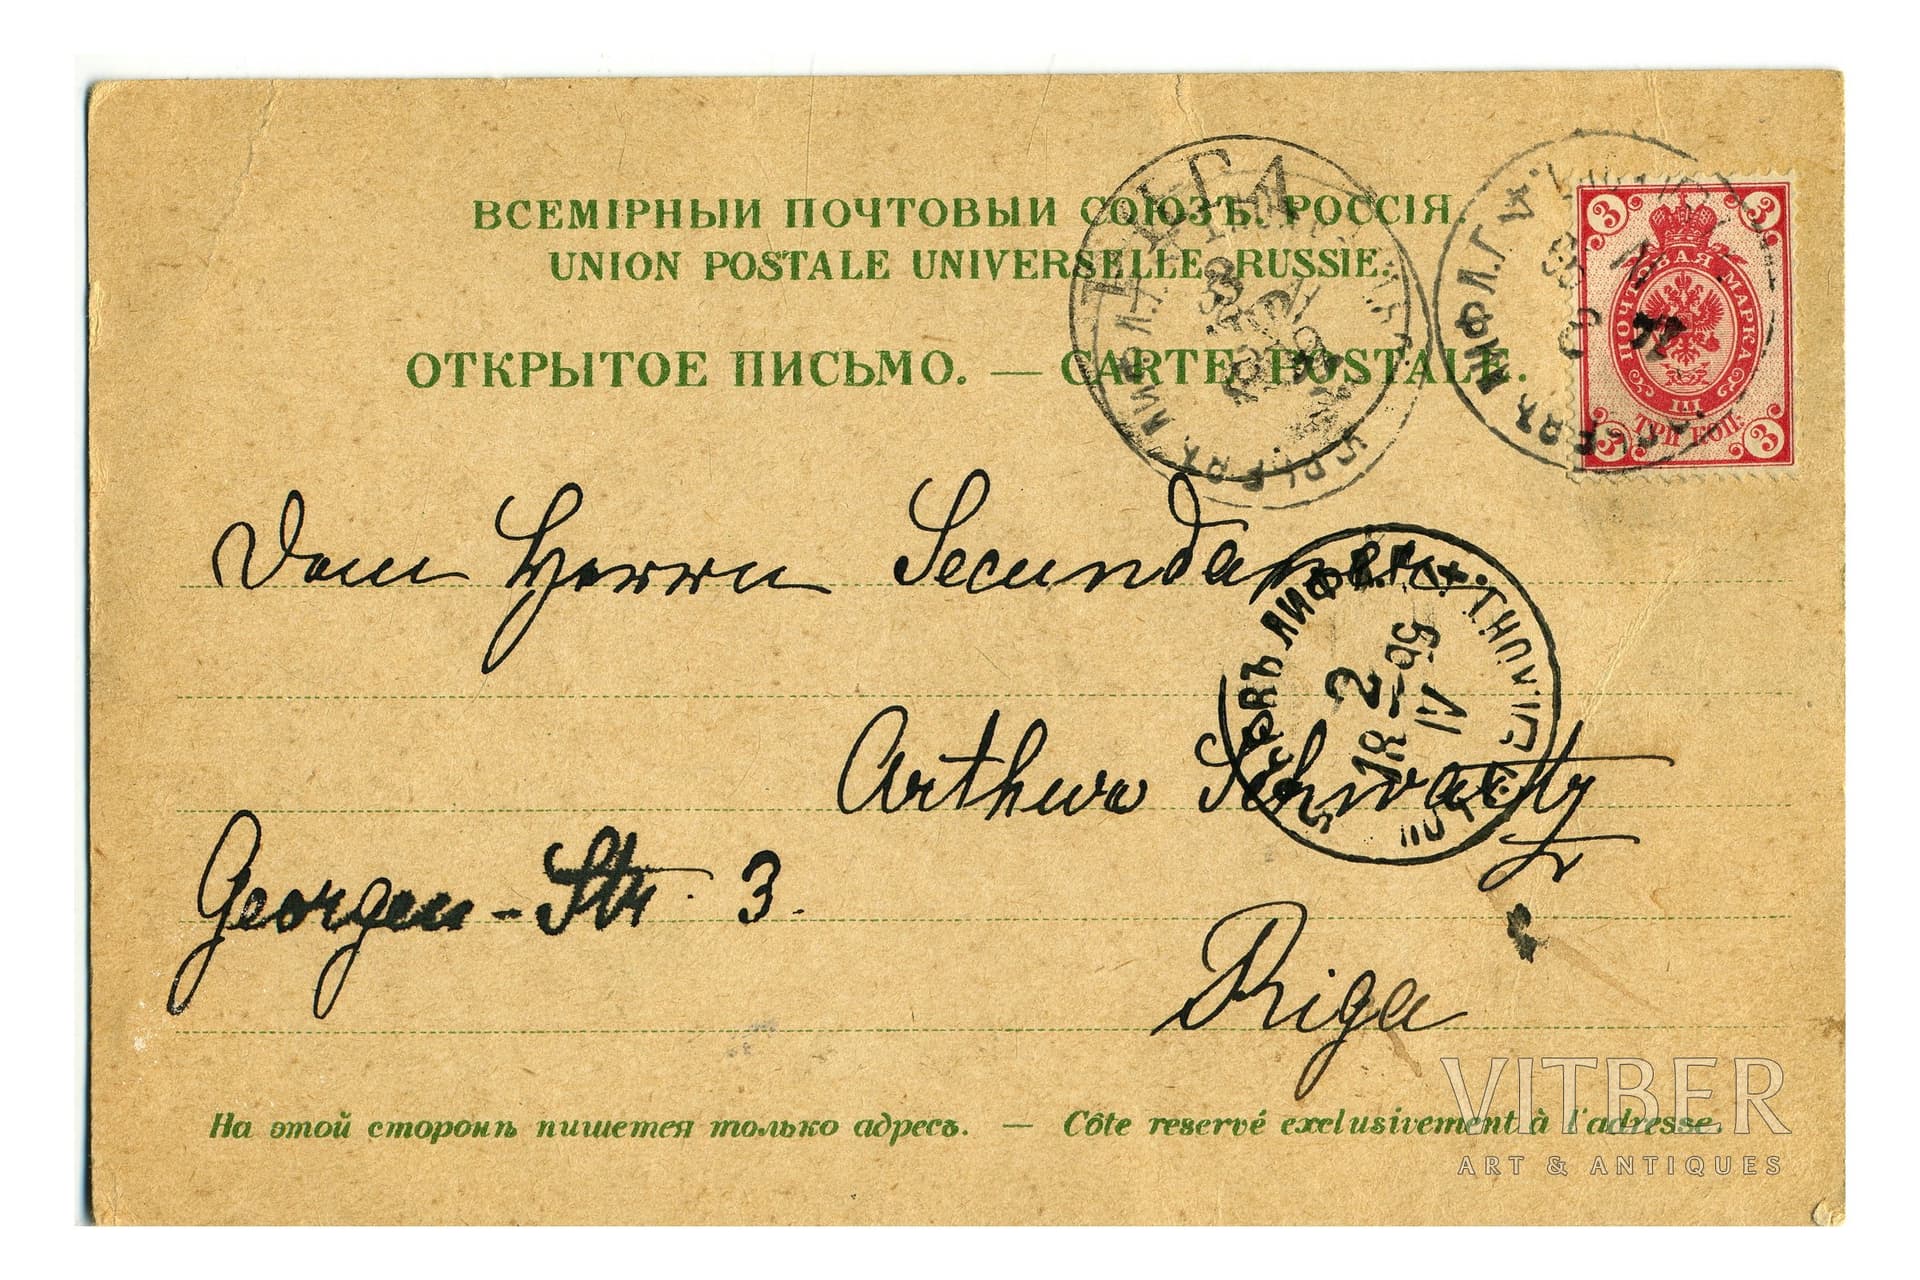 ВСЕМІРНЫЙ ПОЧТОВЫЙ СОЮЗЪ. РОССІЯ.
UNION POSTALE UNIVERSELLE. RUSSIE.
ОТКРЫТОЕ ПИСЬМО. — CARTE POSTALE.
3 3
ПОЧТОВАЯ МАРКА
III
ТРИ КОП.
3 3
РИГА
3
ЮРЬЕВЪ ЛИФЛ.
ЮРЬЕВЪ ЛИФЛ.Г.
ЮРЬЕВЪ ЛИФЛ.Г.
2
IV
Dem Herrn Secundaner
Arthur Schwartz
Georgen-Str. 3.
Riga
На этой сторонѣ пишется только адресъ. — Côte reservé exclusivement à l'adresse.
VITBER
ART & ANTIQUES